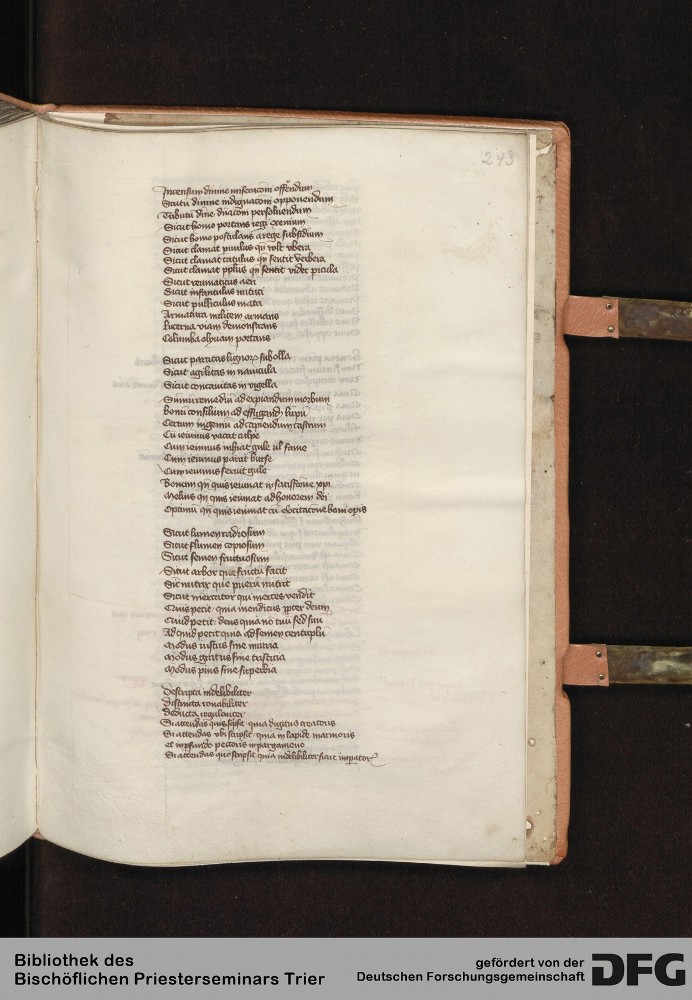 243
Incensum divine offendum
Scutū divine indignacōni opponendum
Tributū dīne persolvendum
Sicut homo portans regi xenium
Sicut homo postulans a rege subsidium
Sicut clamat pūulus qn̄ volt ubera
Sicut clamat catulus qn̄ sentit verbera
Sicut clamat pp̄lus qn̄ sentit videt pericula
Sicut
Sicut infantulus nutrici
Sicut pulliculus matri
Armatura militem armans
Lucerna viam demonstrans
Columba olyvam portans
Sicut paritas lignorū sub olla
Sicut agilitas in navicula
Sicut concavitas in vigella
Sūmū remediū ad expiandum morbum
Bonū consilium ad effugandū lupū
Certum ingeniū ad capiendum castrum
Cū ieiunus vacat culpe
Cum ieiunus gule vl fame
Cum ieiunus parcit burse
Cum ieiunus servit gule
Bonum qn̄ quis ieiunat in satisfactōne xp̄i
Melius qn̄ quis ieiunat ad honorem dei
Optimū qn̄ quis ieiunat cū boni opis
Sicut lumen radiosum
Sicut flumen copiosum
Sicut semen fructuosum
Sicut arbor que fructū facit
Sic nutrix que puerū nutrit
Sicut mercator qui merces vendit
Quis petit quia mendicus ꝓpter deum
Quid petit deus quia nō tuū sed suū
Ad quid petit quia ad semen centuplū
Modus iustus sine
Modus gratus sine tristicia
Modus pius sine superbia
Descripta indelibiliter
Distincta
Deducta regulariter
Si attendas quis scpsit quia digitus creatoris
Si attendas ubi scripsit quia in lapide marmoris
et in pfundo pectoris in pargameno
Si attendas quo scripsit quia indelibiliter sicut imperator
Bibliothek des
Bischöflichen Priesterseminars Trier
gefördert von der
Deutschen Forschungsgemeinschaft
DFG